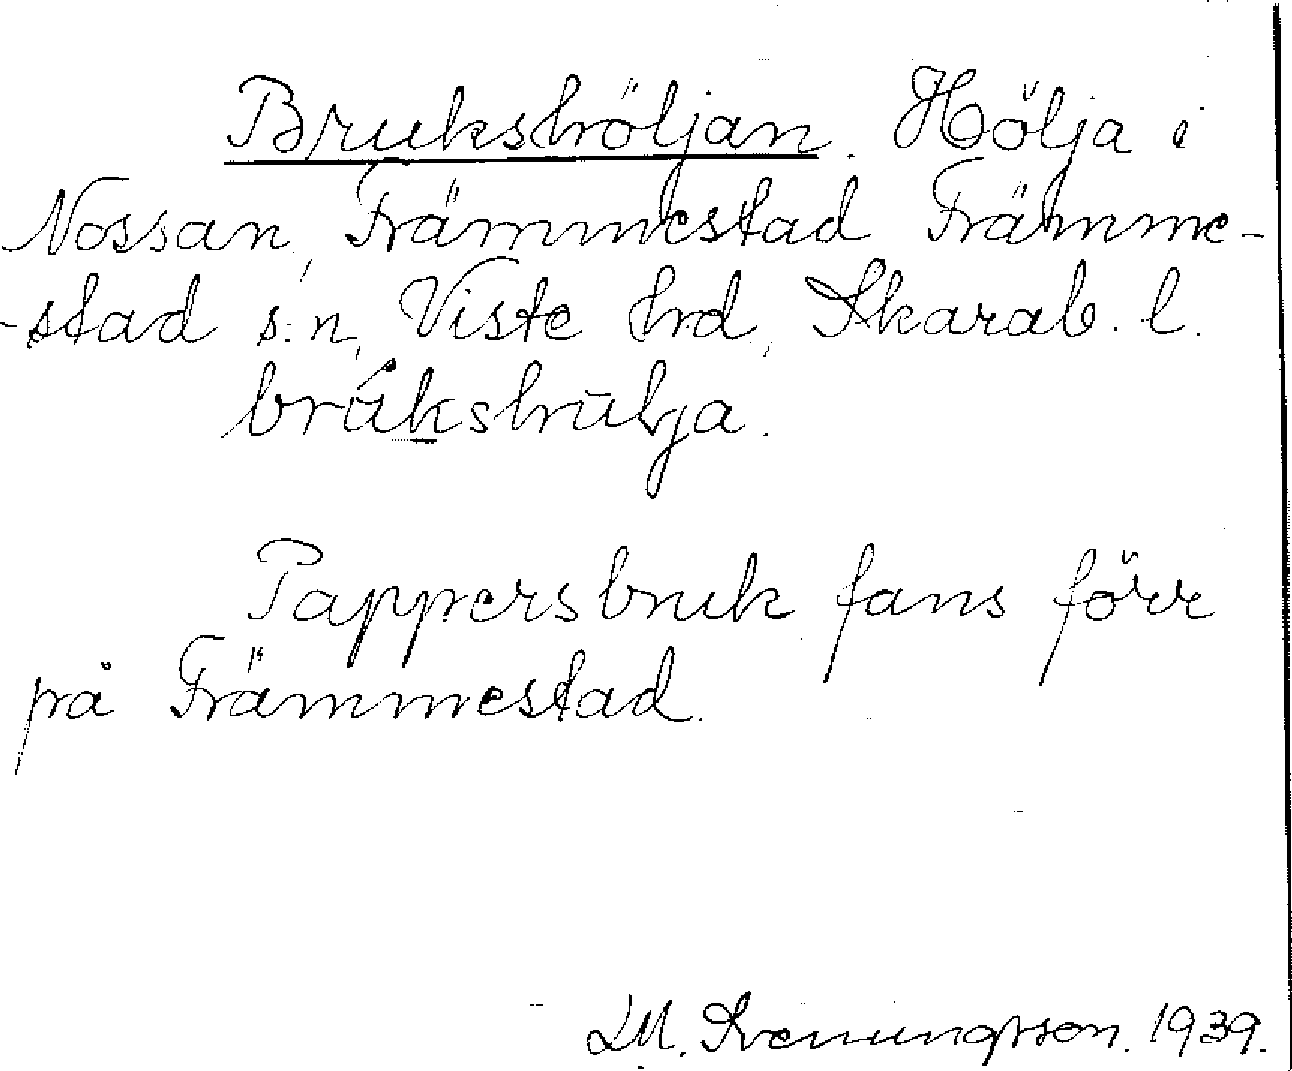 Brukshöljan. Hölja i
Nossan, Främmestad Främme-
-stad s:n, Viste hrd, Skarab. l.
brùkshulja.
Pappersbruk fans förr
på Främmestad.
M. Svenungsson. 1939.